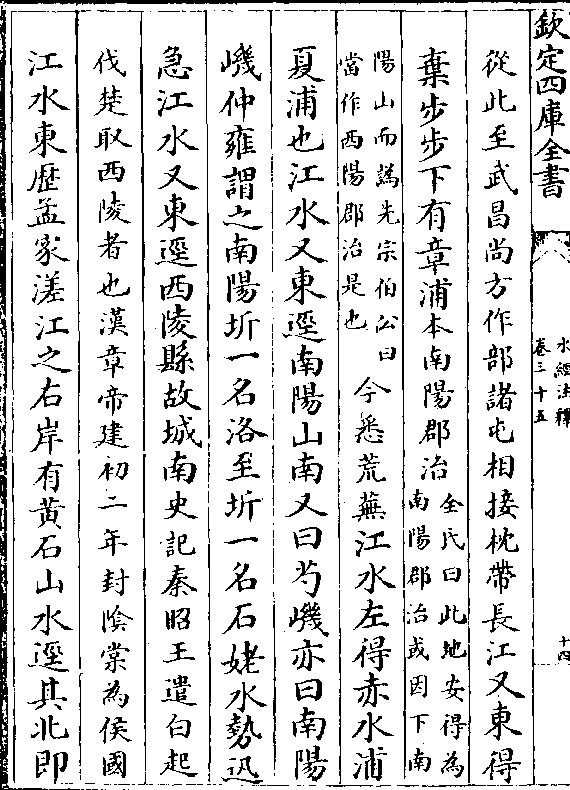 欽定四庫全書
水經注釋
卷三十五
十四
從此至武昌尚方作部諸屯相接枕帶長江又東得
棄步步下有章浦本南陽郡治
全氏曰此地安得為
南陽郡治或因下南
陽山而譌先宗伯公曰
當作西陽郡治是也
今悉荒蕪江水左得赤水浦
夏浦也江水又東逕南陽山南又曰芍嶬亦曰南陽
嶬仲雍謂之南陽圻一名洛至圻一名石姥水勢迅
急江水又東逕西陵縣故城南史記秦昭王遣白起
伐楚取西陵者也漢章帝建初二年封隂棠為侯國
江水東歴孟家溠江之右岸有黄石山水逕其北即